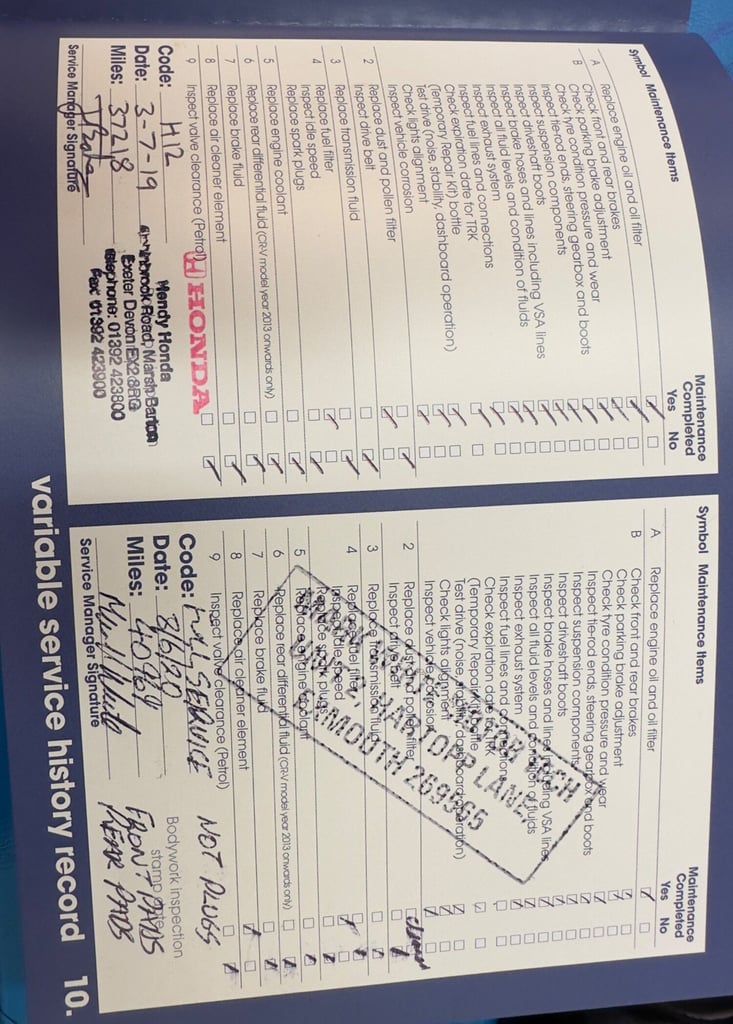 Symbol Maintenance Items
Maintenance Completed
Yes No
A Replace engine oil and oil filter
B Check front and rear brakes
Check parking brake adjustment
Check tyre condition pressure and wear
Inspect tie-rod ends, steering gearbox and boots
Inspect suspension components
Inspect driveshaft boots
Inspect brake hoses and lines including VSA lines
Inspect all fluid levels and condition of fluids
Inspect exhaust system
Inspect fuel lines and connections
Check expiration date for TRK
(Temporary Repair Kit) bottle
Test drive (noise, stability, dashboard operation)
Check lights alignment
Inspect vehicle corrosion
2 Replace dust and pollen filter
Inspect drive belt
3 Replace transmission fluid
4 Replace fuel filter
Inspect idle speed
Replace spark plugs
5 Replace engine coolant
6 Replace rear differential fluid (CR-V model year 2013 onwards only)
7 Replace brake fluid
8 Replace air cleaner element
9 Inspect valve clearance (Petrol)
Code: H12
Date: 3-7-19
Miles: 37218
Service Manager Signature
HONDA
Hendy Honda
Road, Marsh Barton
Exeter Devon EX2 8RG
telephone: 01392 423800
Fax 01392 423900
Symbol Maintenance Items
Maintenance Completed
Yes No
A Replace engine oil and oil filter
B Check front and rear brakes
Check parking brake adjustment
Check tyre condition pressure and wear
Inspect tie-rod ends, steering gearbox and boots
Inspect suspension components
Inspect driveshaft boots
Inspect brake hoses and lines including VSA lines
Inspect all fluid levels and condition of fluids
Inspect exhaust system
Inspect fuel lines and connections
Check expiration date for TRK
(Temporary Repair Kit) bottle
Test drive (noise, stability, dashboard operation)
Check lights alignment
Inspect vehicle corrosion
2 Replace dust and pollen filter cleaned
Inspect drive belt
3 Replace transmission fluid
4 Replace fuel filter
Inspect idle speed
Replace spark plugs
5 Replace engine coolant
6 Replace rear differential fluid (CR-V model year 2013 onwards only)
7 Replace brake fluid
8 Replace air cleaner element
9 Inspect valve clearance (Petrol)
MOTOR TECH
HARTOPP LANE,
EXMOUTH 269565
Code: FULL SERVICE NOT PLUGS
Date: 8/6/20
Miles: 40984
Service Manager Signature
Bodywork inspection
stamp
FRONT PADS
REAR PADS
variable service history record 10.